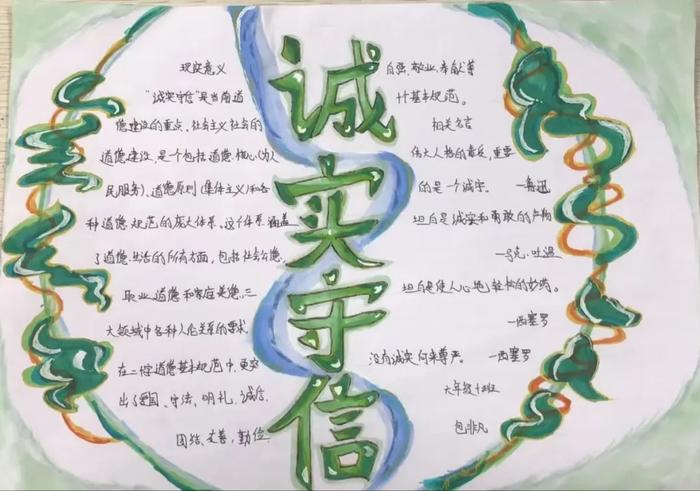 诚实守信
现实意义
"诚实守信"是当前道
德建设的重点。社会主义社会的
道德建设,是个包括道德核心(为人
民服务)、道德原则(集体主义)和各
种道德规范的庞大体系。这个体系涵盖
了道德生活的所有方面,包括社会公德、
职业道德和家庭美德,三
大领域中各种人伦关系的要求.
在二十字道德基本规范中,更突
出了爱国、守法、明礼、诚信、
团结、友善、勤俭、
自强、敬业、奉献等
什基本规范。
相关名言
伟大人格的素质,重要
的是一个诚字。 —鲁迅
坦白是诚实和勇敢的产物
—马克·吐温
坦白是使人心地轻松的妙药。
—西塞罗
没有诚实何来尊严。 —西塞罗
六年级十班
包非凡